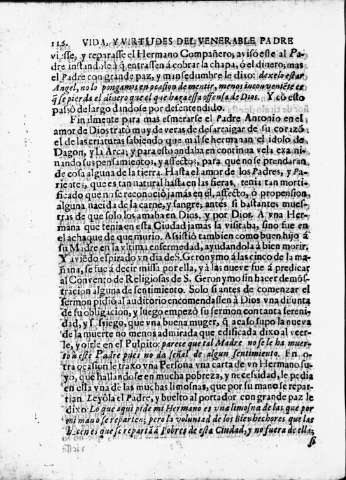 112. VIDA, Y VIRTUDES DEL VENERABLE PADRE
viesse, y reparasse el Hermano Compañero, avisóeste al Pa-
dre instandole à q̃ entrassen à cobrar la chapa, ó el dinero, mas
el Padre con grande paz, y mansedumbre le dixo: dexelo estar
Angel, no lo pongamos en ocasion de mentir, menos inconveniẽte es
q̃ se pierda el dinero que el que haga essa ofensa de Dios. Y cõ esto
passò de largo dandose por desentendido.
Finalmente para mas esmerarse el Padre Antonio en el
amor de Dios tratò muy de veras de desarraigar de su corazõ
el de las criaturas sabiendo que mal se hermanan el idolo de
Dagon, y la Arca; y para esto andaba en continua vela exa mi-
nando sus pensamientos, y affectos, para que no se prendaran
de cosa alguna de la tierra. Hasta el amor de los Padres, y Pa-
rientes, que es tan natural hasta en las fieras, tenia tan morti-
ficado que no se reconociò jamàs en el, affecto, ò propension
alguna nacida de la carne, y sangre, antes si bastantes mues-
tras de que solo los amaba en Dios, y por Dios. A vna Her-
mana que tenia en esta Ciudad jamas la visitaba, sino fue en
el achaque de que murio. Assistiò tambien como buen hijo à
su Madre en la vltima enfermedad, ayudandola à bien morir,
Y aviẽdo espirado vn dia de S. Geronymo à las cinco de la ma-
ñana, se fue à decir missa por ella, y à las nueve fue à predicar
al Convento de Religiosas de S. Geronymo sin hacer demõs-
tracion alguna de sentimiento. Solo si antes de comenzar el
Sermon pidiò al auditorio encomendassen à Dios vna difunta
de su obligacion, y luego empezò su sermon con tanta sereni-
dad, y sossiego, que vna buena muger, q̃ acaso supo la nueva
de la muerte no menos admirada que edificada dixo al ver-
le, y oirle en el Pulpito: parece que tal Madre no se le ha muer-
to à este Padre pues no dà señal de algun sentimiento. En o-
tra ocasion le traxo vna Persona vna carta de vn Hermano su-
yo, que hallandose en mucha pobreza, y necessidad, le pedia
en ella vna de las muchas limosnas, que por su mano se repar-
tian. Leyòla el Padre, y buelto al portador con grande paz le
dixo: Lo que aqui pide mi Hermano es vna limosna de las que por
mi mano se reparten; pero la voluntad de los Bienhechores que las
hacen es que se repartã à Pobres de esta Ciudad, y no fuera de ella;